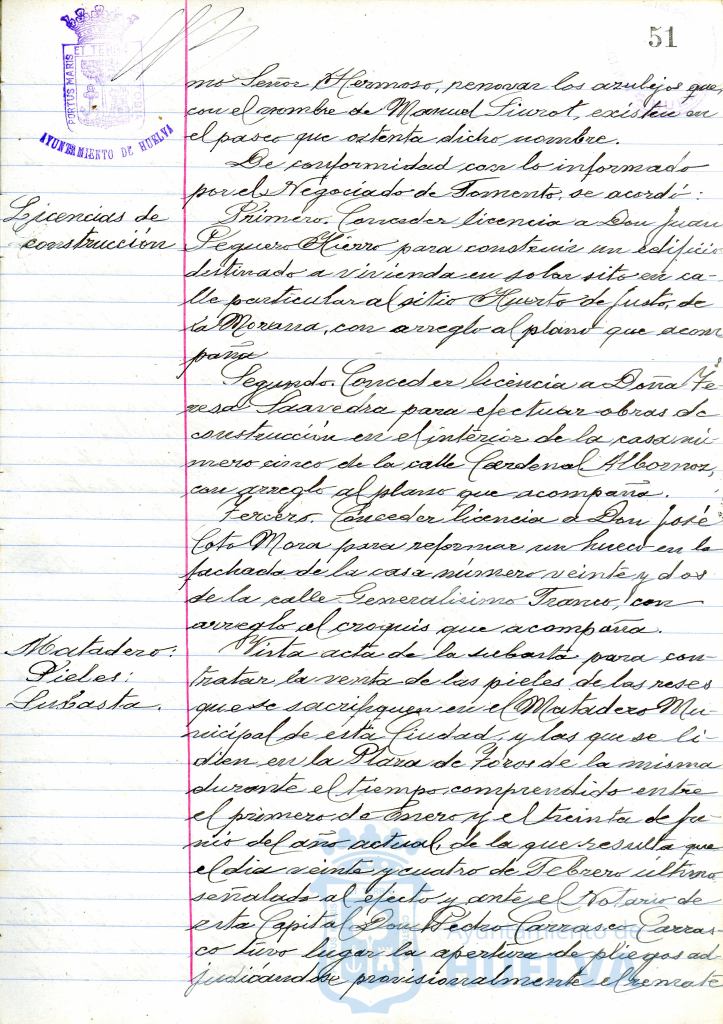 51
PORTUS MARIS ET TERRAE
AYUNTAMIENTO DE HUELVA
mo Señor Hermoso, renovar los azulejos que,
con el nombre de Manuel Siurot, existen en
el paseo que ostenta dicho nombre.
De conformidad con lo informado
por el Negociado de Fomento, se acordó:
Licencias de
construcción
Primero. Conceder licencia a Don Juan
Peguero Hierro para construir un edificio
destinado a vivienda en solar sito en ca-
lle particular al sitio Huerto de Justo, de
la Morana, con arreglo al plano que acom
paña
Segundo. Conceder licencia a Doña Te-
resa Saavedra para efectuar obras de
construcción en el interior de la casa nú-
mero cinco de la calle Cardenal Albornoz,
con arreglo al plano que acompaña.
Tercero. Conceder licencia a Don José
Coto Mora para reformar un hueco en la
fachada de la casa número veinte y dos
de la calle Generalísimo Franco, con
arreglo al croquis que acompaña.
Matadero:
Pieles:
Subasta.
Vista acta de la subasta para con-
tratar la venta de las pieles de las reses
que se sacrifiquen en el Matadero Mu-
nicipal de esta Ciudad, y las que se li-
dien en la Plaza de Toros de la misma
durante el tiempo comprendido entre
el primero de Enero y el treinta de Ju-
nio del año actual, de la que resulta que
el día veinte y cuatro de Febrero último
señalado al efecto y ante el Notario de
esta Capital Don Pedro Carrasco Carras-
co tuvo lugar la apertura de pliegos ad-
judicándose provisionalmente el remate
Ayuntamiento de
HUELVA